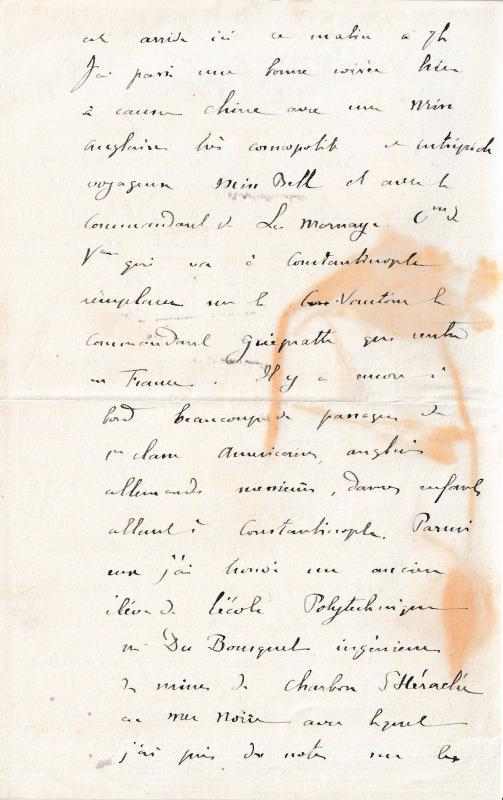 est arrivé ici ce matin à 7h
J'ai passé une bonne soirée hier
à causer chine avec une miss
anglaise très cosmopolite et intrépide
voyageuse Miss Bell et avec le
commandant de La Mornaye. C^m de
V^eau qui va à Constantinople
remplacer sur le Vautour le
commandant Guépratte qui rentre
en France. Il y a encore à
bord beaucoup de passagers de
1^re classe américains, anglais
allemands messieurs, dames enfants
allant à Constantinople. Parmi
eux j'ai trouvé un ancien
élève de l'école Polytechnique
m^r Du Bousquet ingénieur
de mines de charbon d'Héraclée
en mer noire avec lequel
j'ai pris des notes sur les